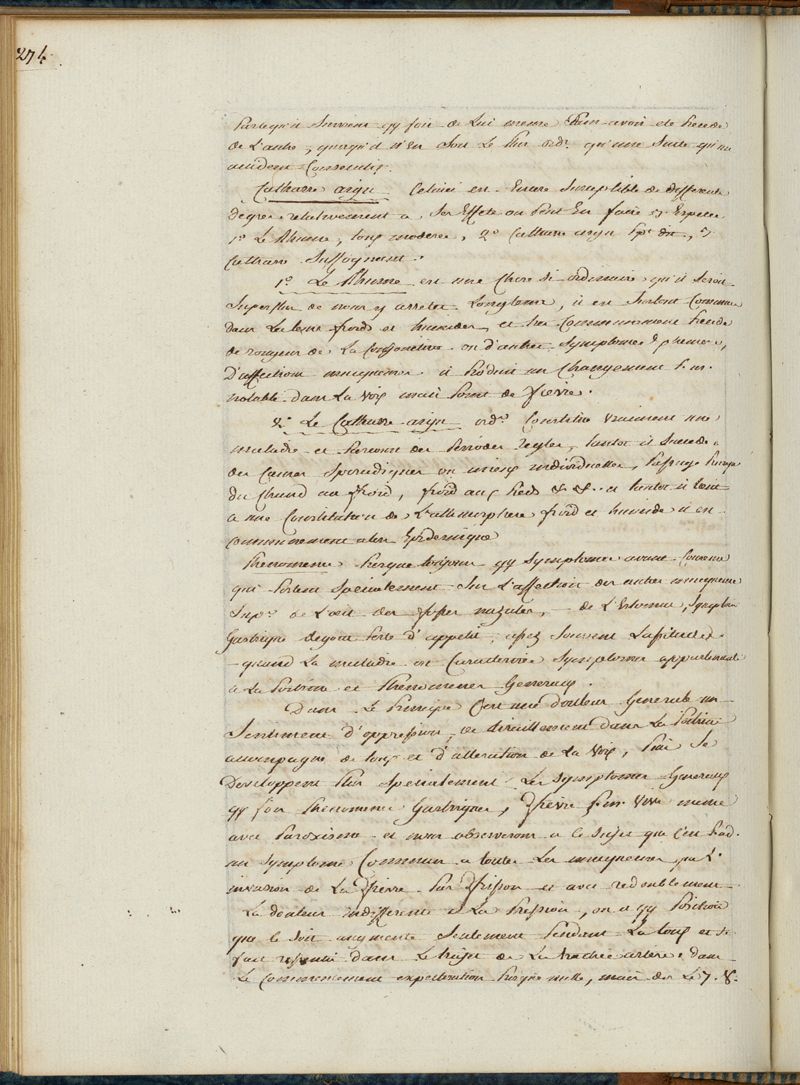 274.
survient qq fois de lui meme sans avoir ete precede
de L'autre, quoiqu'il n'en soit le plus ord.t qu'une suite qu'un
accident Consecutif
Catharre aigu Celui ci est Encore susceptible de differents
degres relativement a ses Effets on peut En faire 3 Especes
1.o Le Rhume, toux moderee, 2.o Catharre aigu pt dit, 3
Catharre suffoquant.
1.o Le Rhume est une Chose si ordinaire qu'il seroit
superflu de nous y arreter Longtems, il est surtout Commun
dans les tems froids et humides, et est Communement precede
de rougeur de La Conjonctive ou d'autres symptomes
D'affections muqueuses il produit un Changement
notable dans La voix mais point de fievre.
2.o Le Catharre aigu ord.t Constitue vraiment une
maladie et parcourt des Periodes regles, tantot il succede
a des Causes sporadiques ou mieux individuelles, passage
du chaud au froid, froid aux pieds &c &c.. et tantot il tient
a une Constitution de L'atmosphere froid et humide il est
communement alors Epidemique
Phenomenes presque toujours qq symptomes avant
qui portent specialement sur L'affection des autres muqueuses
de L'oeil des fosses nazales, de L'Estomac, symptomes
Gastrique degout perte d'appetit, assez souvent Lassitudes
quand La maladie est Caracterisee symptomes appartenant
a La Poitrine et Phenomenes Generaux.
Dans Le Principe C'est une douleur Generale un
sentiment d'oppression, de tiraillement dans La Poitrine
accompagne de toux et d'alteration de La voix, puis se
Developpent plus specialement Les symptomes Generaux
qq fois Phenomenes Gastriques, fievre vive meme
avec Paroxisme et nous observerons a ce sujet que c'est
un symptome Commun a toutes Les muqueuses, L'
invasion de La fievre par frisson et avec redoublement
La douleur indifferente a La Pression, ou a qq Position
que ce soit augmente seulement Pendant La toux et se
fait ressentir dans Le trajet de La trachee artere, dans
Le Commencement expectoration presque nulle, mais des Le 7. 8.